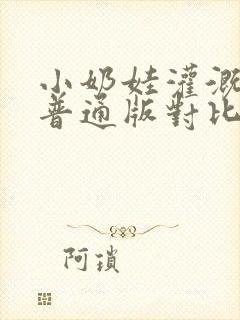 小奶娃灌溉
普通版對比
阿瑣